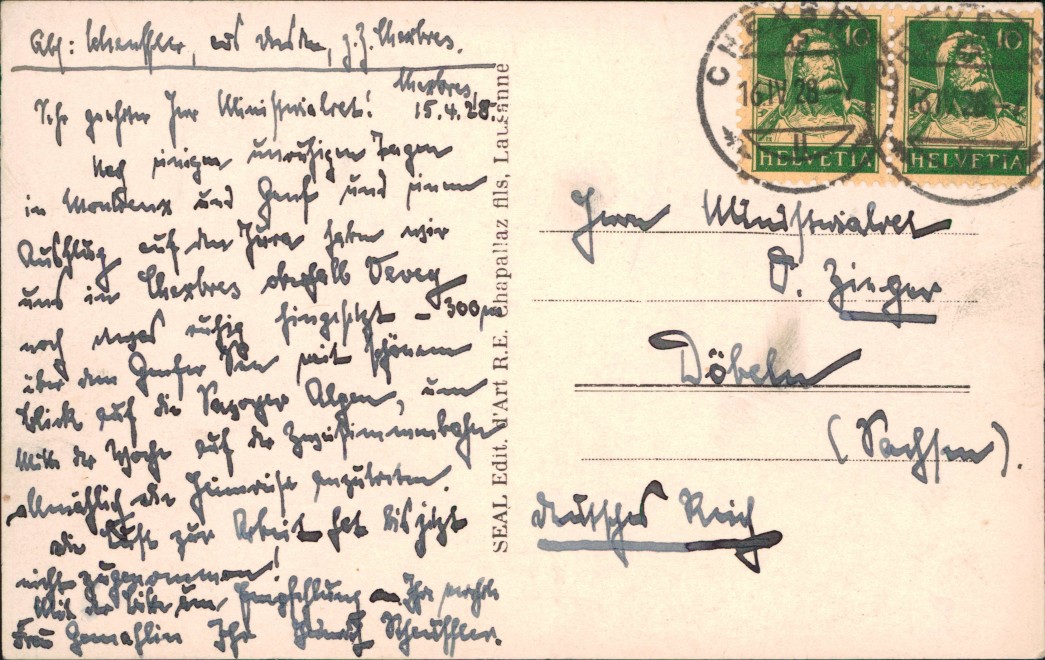 Abs: Scheuffler, aus Dresden, z.Z. Chexbres.
Chexbres, 15.4.28.
Sehr geehrter Herr Ministerialrat!
Nach einigen unruhigen Tagen
in Montreux und Genf und einem
Ausflug auf den Jura haben wir
uns in Chexbres oberhalb Vevey
noch etwas ruhig hingesetzt – 300 m
über dem Genfer See mit schönem
Blick auf die Savoyer Alpen, um
Mitte der Woche auf der Zweisimmenbahn
allmählich die Heimreise anzutreten.
Die Lust zur Arbeit hat bis jetzt
nicht zugenommen!
Mit der Bitte um Empfehlung an Ihre verehrte
Frau Gemahlin Ihr Heinrich Scheuffler.
SEAL Edit. d'Art R.E. Chapallaz fils, Lausanne
CHEXBRES
16.IV.28
10
HELVETIA
10
HELVETIA
Herrn Ministerialrat
D. Zieger
Döbeln
(Sachsen).
Deutsches Reich